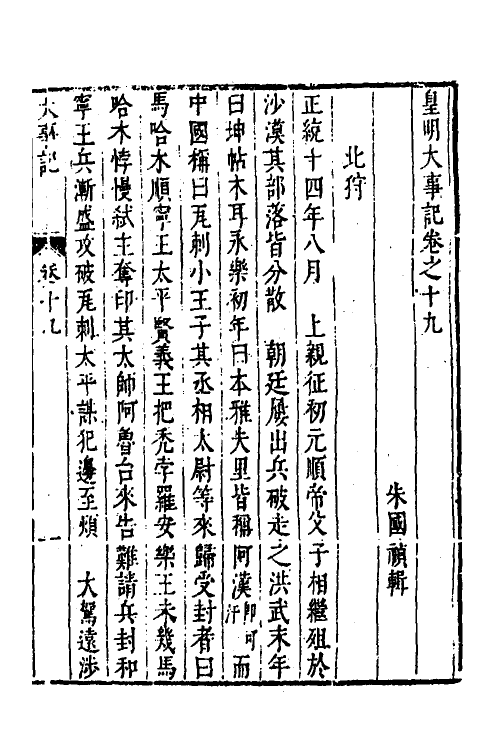 皇明大事記卷之十九
朱國禎輯
北狩
正統十四年八月　上親征初元順帝父子相繼殂於
沙漠其部落皆分散　朝廷屢出兵破走之洪武末年
曰坤帖木耳永樂初年曰本雅失里皆稱阿漢卽可汗而
中國稱曰瓦剌小王子其丞相太尉等來歸受封者曰
馬哈木順寧王太平賢義王把禿孛羅安樂王未幾馬
哈木悖慢弒主奪印其太師阿魯台來告難請兵封和
寧王兵漸盛攻破瓦剌太平謀犯邊至煩　大駕遠涉
大事記　卷十九　一